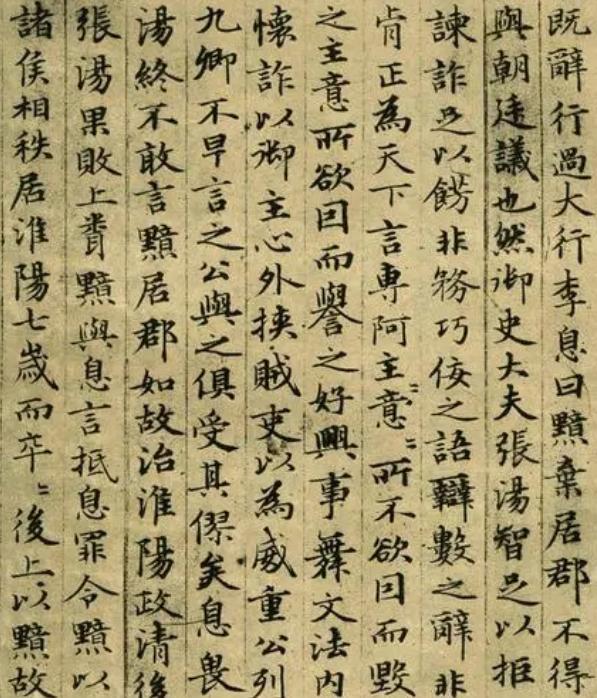 既辭行過大行李息曰黯棄居郡不得
與朝廷議也然御史大夫張湯智足以拒
諫詐足以餝非務巧佞之語辯數之辭非
肯正為天下言專阿主意〻所不欲因而毀
之主意所欲因而譽之好興事舞文法内
懷詐以御主心外挾賊吏以為威重公列
九卿不早言之公與之俱受其僇矣息畏
湯終不敢言黯居郡如故治淮陽政清後
張湯果敗上䎽黯與息言抵息罪令黯以
諸侯相秩居淮陽七歲而卒〻後上以黯故